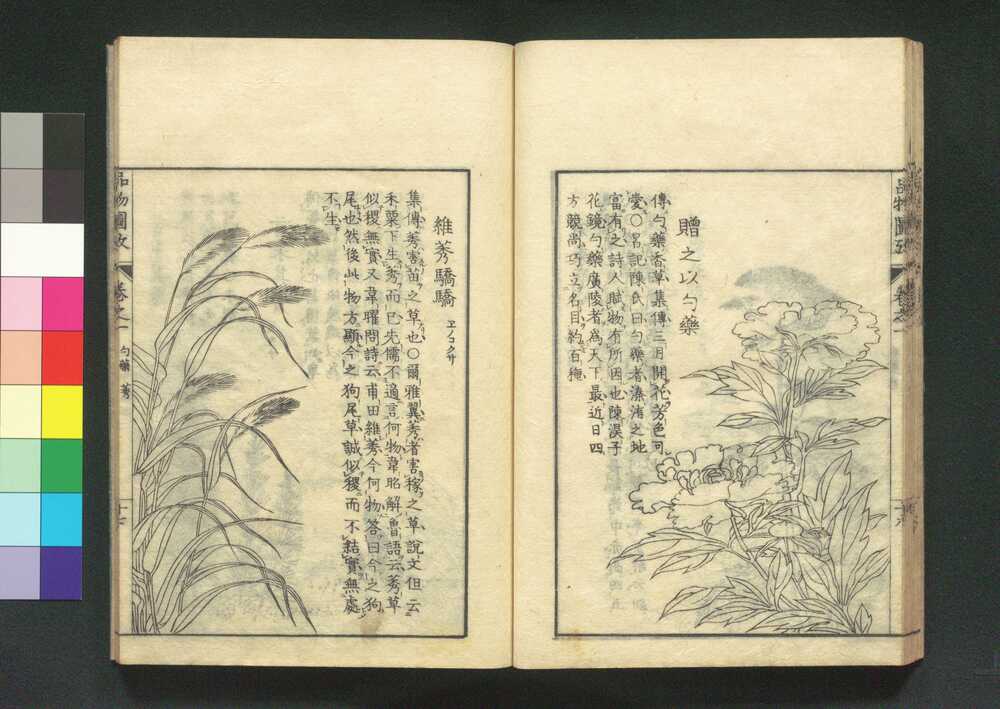 贈之以勺藥
傳勺藥香草集傳三月開花芳色可
愛〇呂記陳氏曰勺藥者溱洧之地
富有之詩人賦物有所因也陳淏子
花鏡勺藥廣陵者為天下最近日四
方競尚巧立名目約百種
品物圖攷
卷之一
維莠驕驕 ヱノコクサ
集傳莠害苗之草也〇爾雅翼莠者害稼之草說文但云
禾粟下生莠而已先儒不適言何物韋昭解魯語云莠草
似稷無實又韋曜問詩云甫田維莠今何物答曰今之狗
尾也然後此物方顯今之狗尾草誠似稷而不結實無處
不生
品物圖攷
卷之一
勺藥 莠
十七